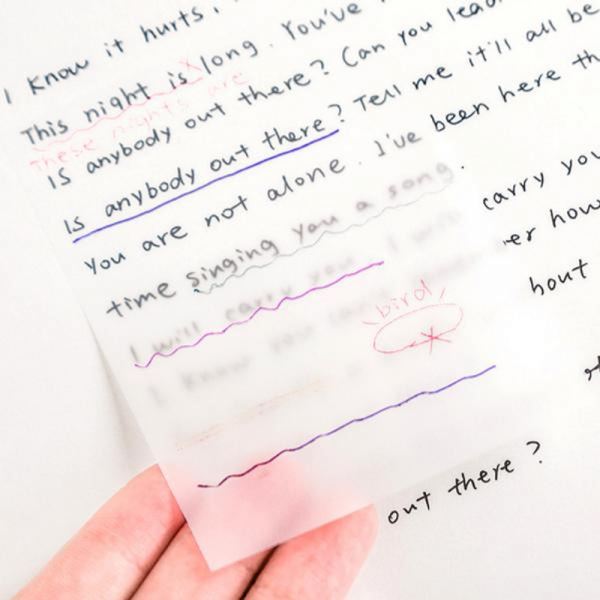 I know it hurts,
This night is long. You've
These nights are
Is anybody out there? Can you lead
Is anybody out there? Tell me it'll all be
You are not alone. I've been here th
time singing you a song. carry you
I will carry you I will er how
bird
I know you can't hout
out there?